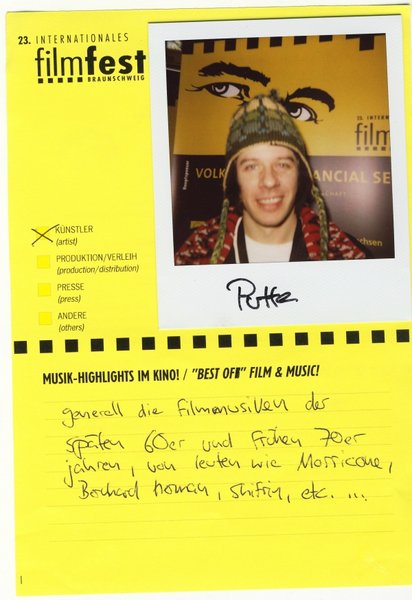 23. INTERNATIONALES
filmfest
BRAUNSCHWEIG
23. INTERN
film
VOLK
ANCIAL SE
CHSCHAFT
chsen
Hauptsponsor
KÜNSTLER
(artist)
PRODUKTION/VERLEIH
(production/distribution)
PRESSE
(press)
ANDERE
(others)
MUSIK-HIGHLIGHTS IM KINO! / "BEST OF" FILM & MUSIC!
generell die Filmmusiken der
späten 60er und frühen 70er
jahren, von leuten wie Morricone,
Bernard Herman, Shifrin, etc. ...